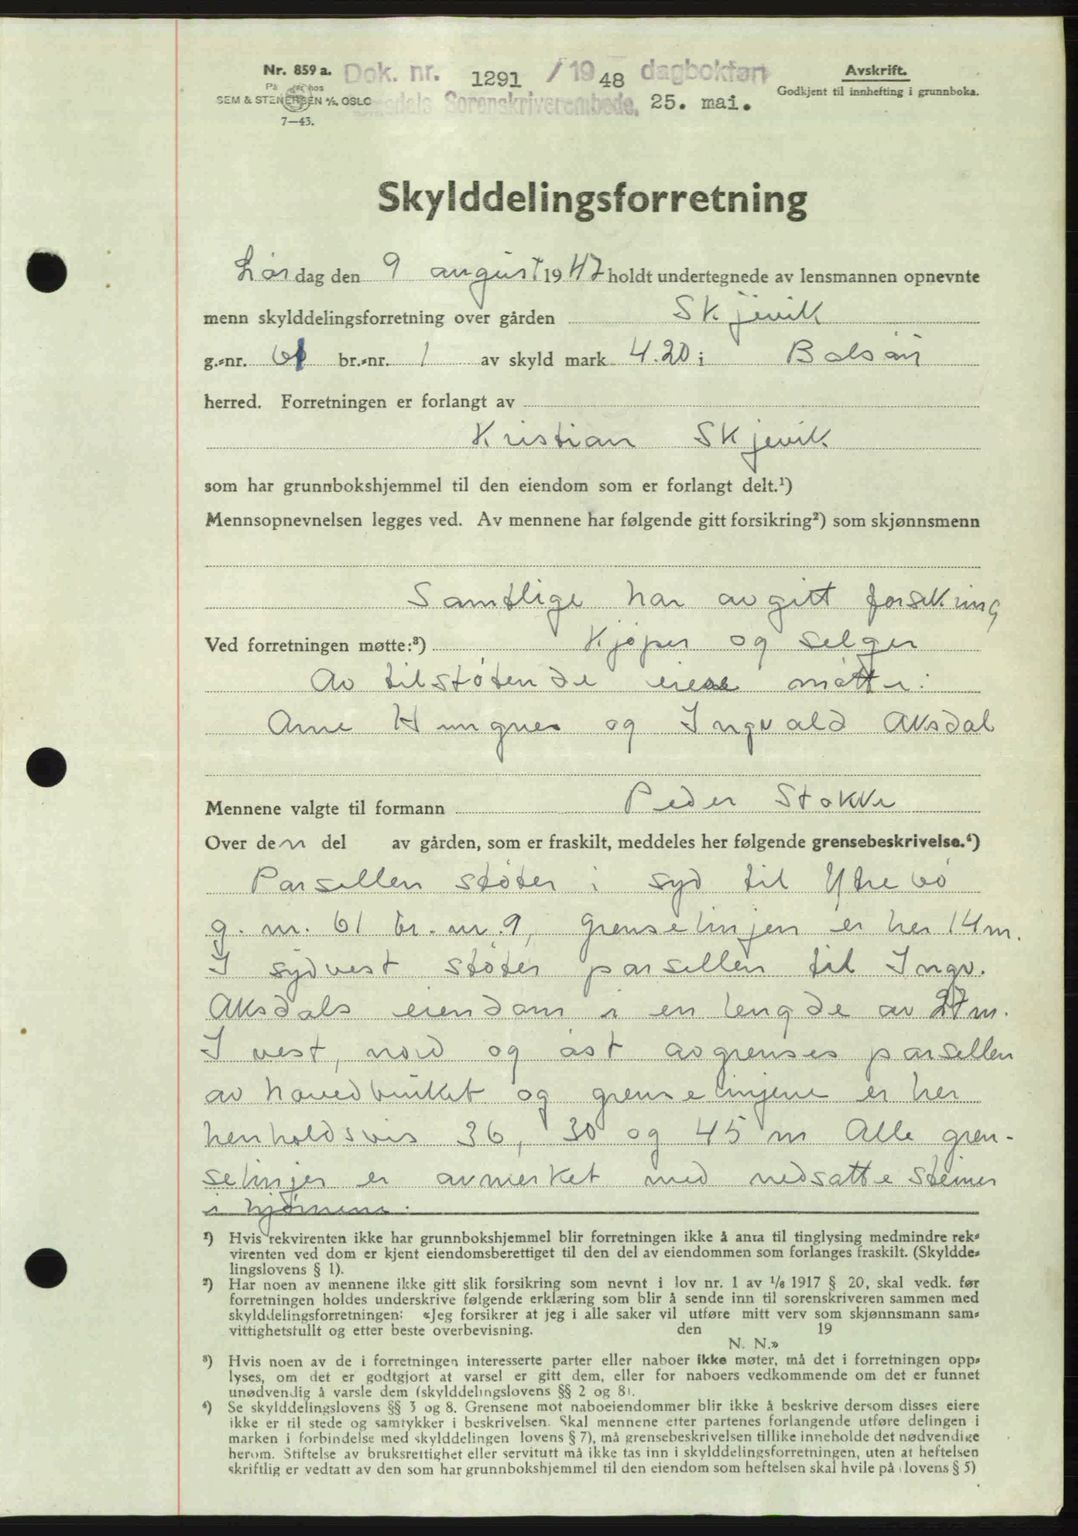 Nr. 859 a.
På hos
SEM & STENERSEN A/S, OSLO
7—43.
Dok. nr. 1291 / 1948 dagbokført
Sorenskriverembede. 25. mai.
Avskrift.
Godkjent til innhefting i grunnboka.
Skylddelingsforretning
Lørdag den 9 august 1947 holdt undertegnede av lensmannen opnevnte
menn skylddelingsforretning over gården Skjevik
g.-nr. 61 br.-nr. 1 av skyld mark 4.20 i Bolsøy
herred. Forretningen er forlangt av
Kristian Skjevik
som har grunnbokshjemmel til den eiendom som er forlangt delt.¹)
Mennsopnevnelsen legges ved. Av mennene har følgende gitt forsikring²) som skjønnsmenn
Samtlige har avgitt forsikring
Ved forretningen møtte:³) Kjøper og selger
Av tilstøtende eiere møtte:
Arne Hungnes og Ingvald Aksdal
Mennene valgte til formann Peder Stokke
Over den del av gården, som er fraskilt, meddeles her følgende grensebeskrivelse.⁴)
Parsellen støter i syd til Ytrebø
g. nr. 61 br. nr. 9, grenselinjen er her 14 m.
I sydvest støter parsellen til Ingv.
Aksdals eiendom i en lengde av 27 m.
I vest, nord og øst avgrenses parsellen
av hovedbruket og grenselinjene er her
henholdsvis 36, 30 og 45 m Alle gren-
selinjer er avmerket med nedsatte steiner
i hjørnene.
¹) Hvis rekvirenten ikke har grunnbokshjemmel blir forretningen ikke å anta til tinglysing medmindre rek-
virenten ved dom er kjent eiendomsberettiget til den del av eiendommen som forlanges fraskilt. (Skyldde-
lingslovens § 1).
²) Har noen av mennene ikke gitt slik forsikring som nevnt i lov nr. 1 av 1/6 1917 § 20, skal vedk. før
forretningen holdes underskrive følgende erklæring som blir å sende inn til sorenskriveren sammen med
skylddelingsforretningen: «Jeg forsikrer at jeg i alle saker vil utføre mitt verv som skjønnsmann sam-
vittighetsfullt og etter beste overbevisning. den 19
N. N.»
³) Hvis noen av de i forretningen interesserte parter eller naboer ikke møter, må det i forretningen opp-
lyses, om det er godtgjort at varsel er gitt dem, eller for naboers vedkommende om det er funnet
unødvendig å varsle dem (skylddelingslovens §§ 2 og 8).
⁴) Se skylddelingslovens §§ 3 og 8. Grensene mot naboeiendommer blir ikke å beskrive dersom disses eiere
ikke er til stede og samtykker i beskrivelsen. Skal mennene etter partenes forlangende utføre delingen i
marken i forbindelse med skylddelingen lovens § 7), må grensebeskrivelsen tillike inneholde det nødvendige
herom. Stiftelse av bruksrettighet eller servitutt må ikke tas inn i skylddelingsforretningen, uten at heftelsen
skriftlig er vedtatt av den som har grunnbokshjemmel til den eiendom som heftelsen skal hvile på (lovens § 5)